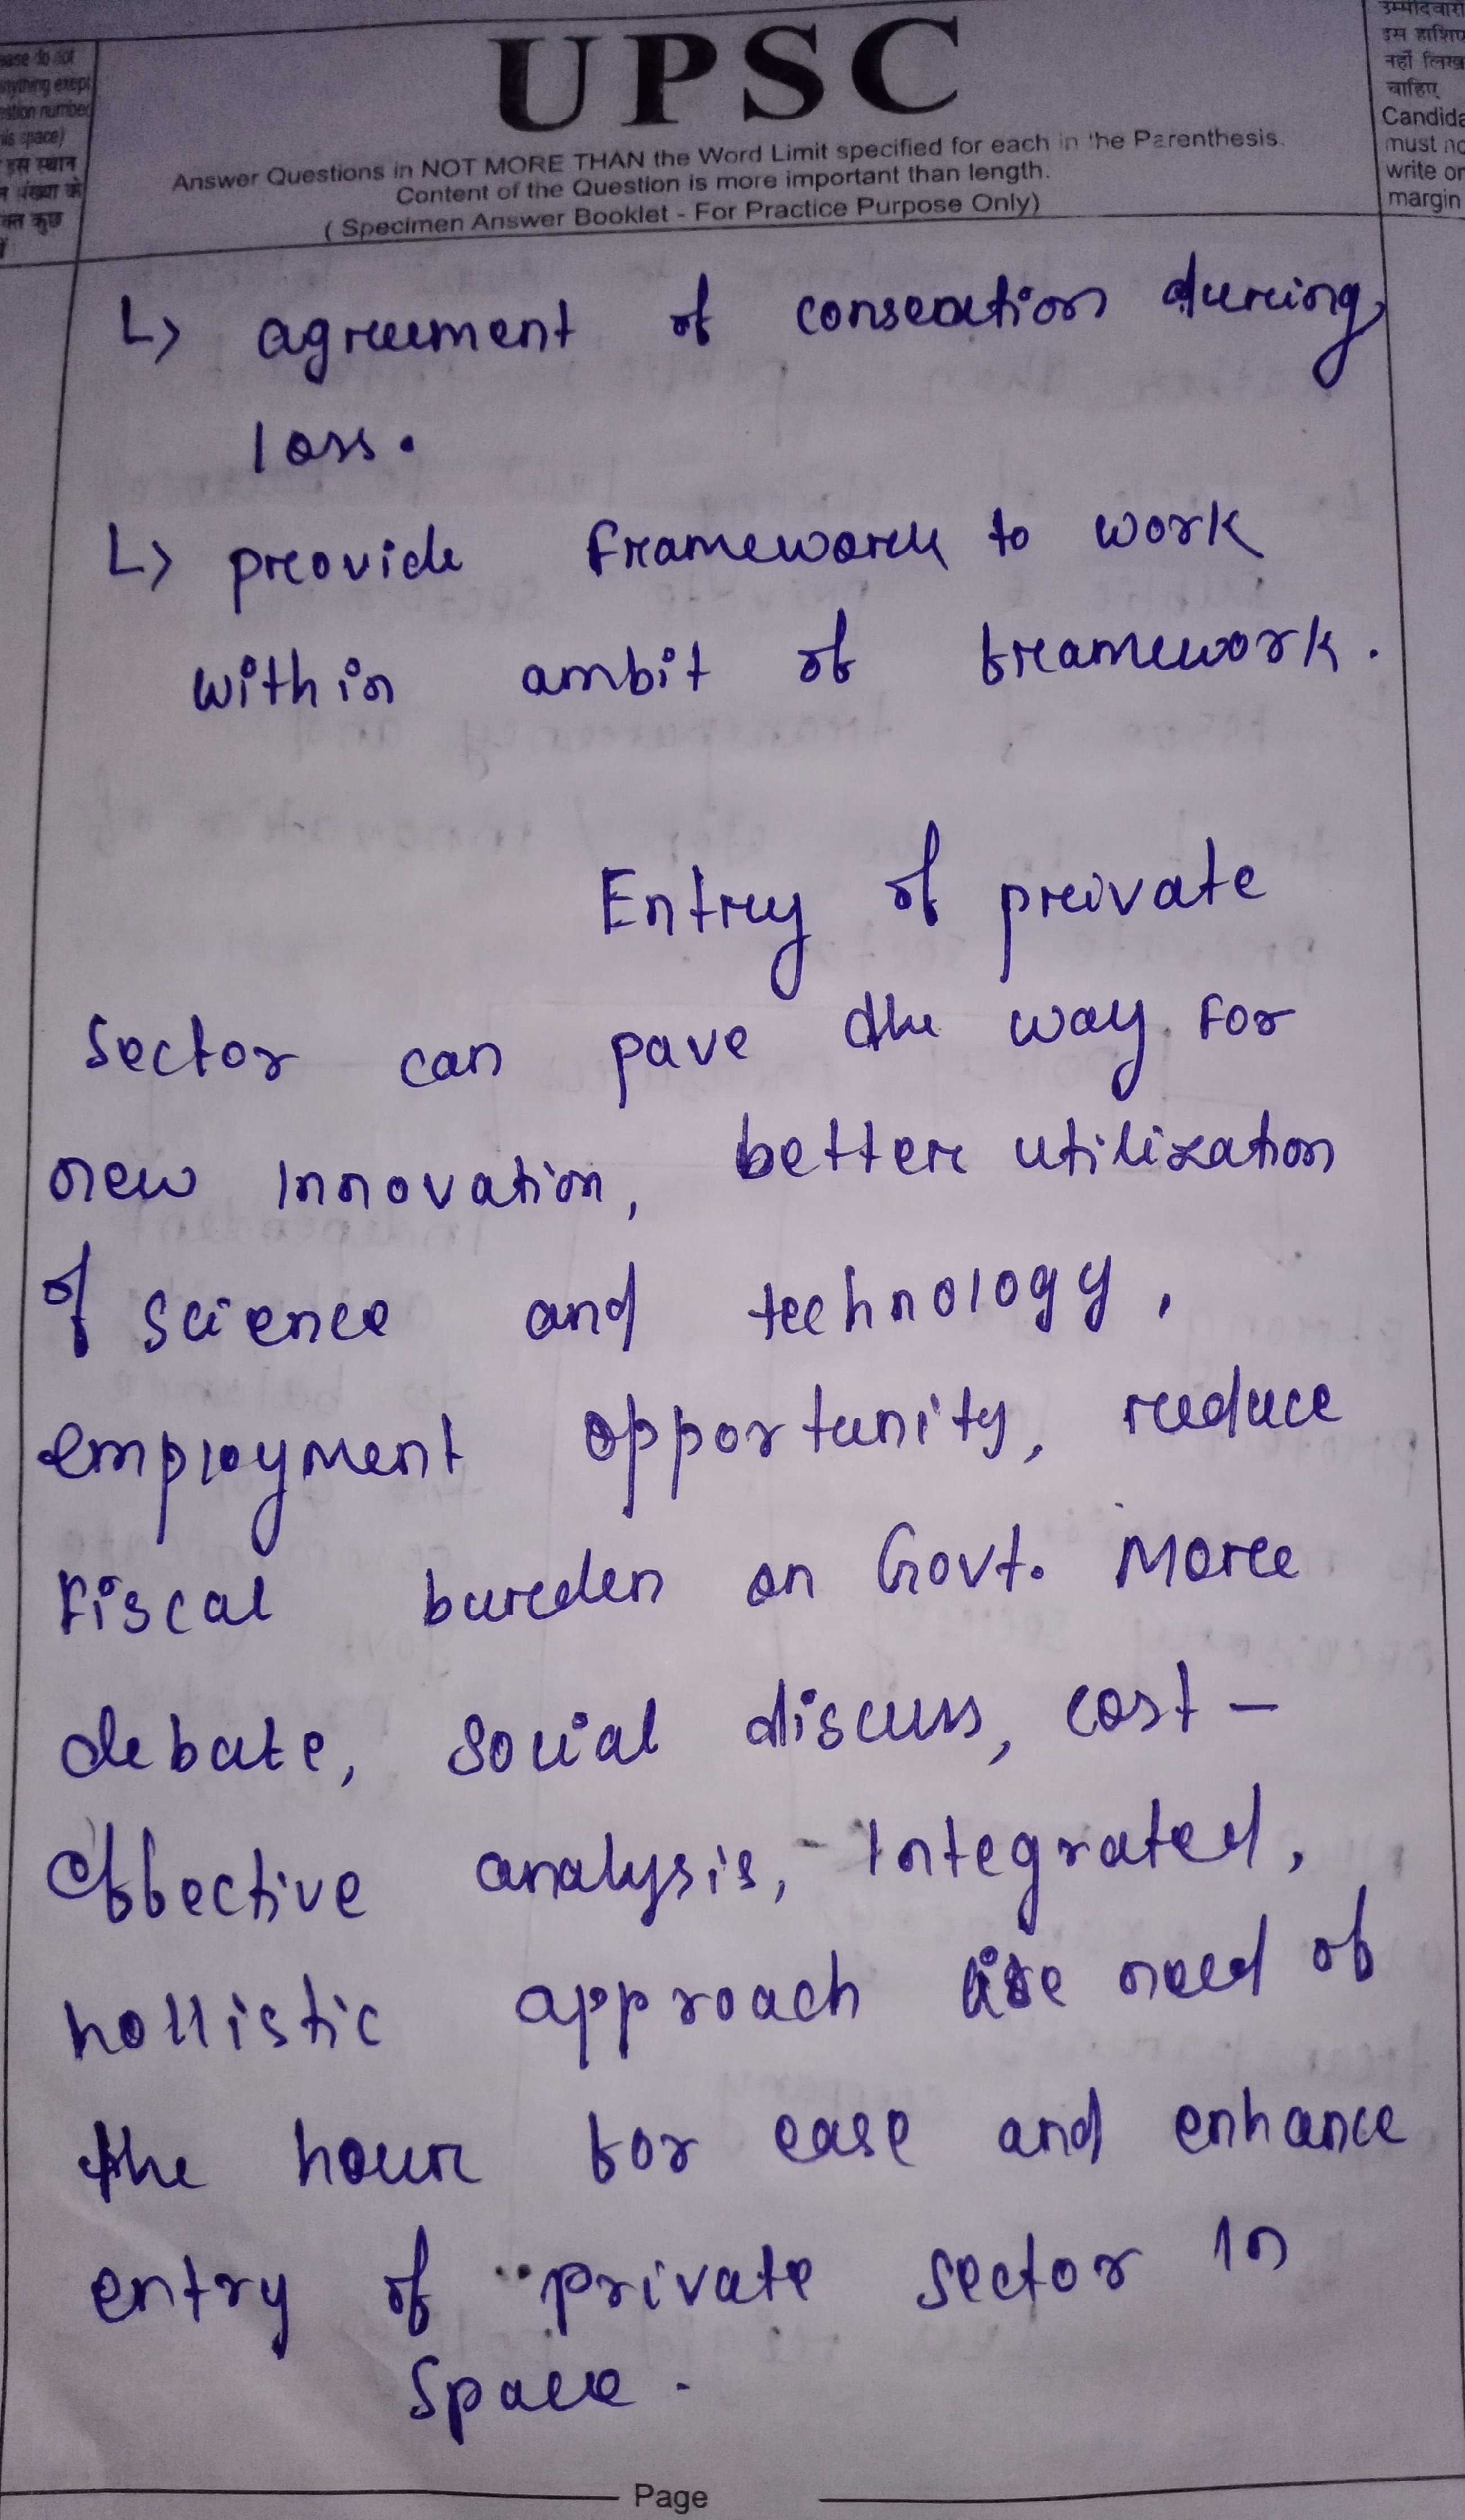 ease do not
nything exept
estion number
his space)
इस स्थान
न संख्या के
क्त कुछ
UPSC
Answer Questions in NOT MORE THAN the Word Limit specified for each in the Parenthesis.
Content of the Question is more important than length.
( Specimen Answer Booklet - For Practice Purpose Only)
उम्मीदवारों
इस हाशिए
नहीं लिख
चाहिए
Candida
must no
write on
margin
↳ agreement of conseation during
loss.
↳ provide framework to work
within ambit of framework.
Entry of private
sector can pave the way for
new innovation, better utilization
of science and technology,
employment opportunity, reduce
fiscal burden on Govt. More
debate, social discuss, cost-
effective analysis, Integrated,
hollistic approach are need of
the hour for ease and enhance
entry of private sector in
space.
Page